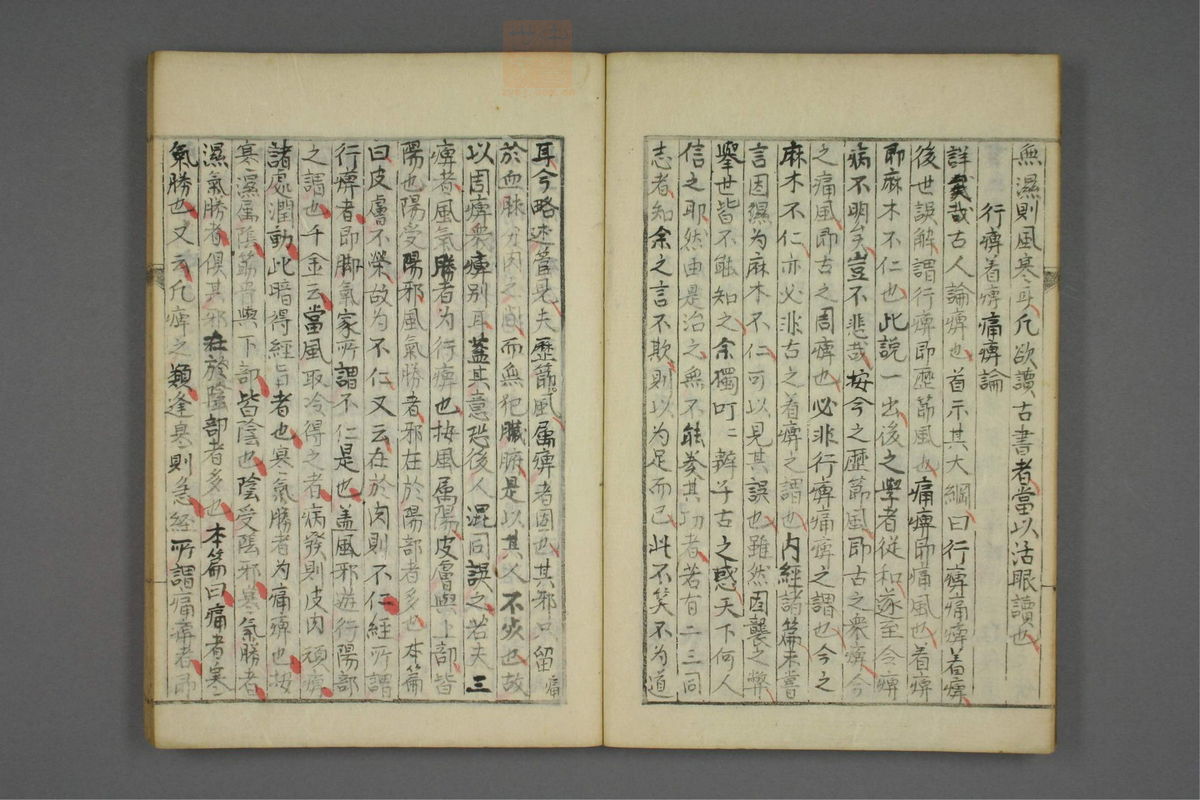 無濕則風寒耳凡欲讀古書者當以活眼讀也
行痺着痺痛痺論
詳哉古人論痺也首示其大綱曰行痺痛痺着痺
後世誤解謂行痺即歷節風也痛痺即痛風也着痺
即麻木不仁也此說一出後之學者從和遂至令痺
病不明矣豈不悲哉按今之歷節風即古之衆痺今
之痛風即古之周痺也必非行痺痛痺之謂也今之
麻木不仁亦必非古之着痺之謂也內經諸篇未嘗
言因濕為麻木不仁可以見其誤也雖然因襲之弊
舉世皆不能知之余獨叮〻辨千古之惑天下何人
信之耶然由是治之無不能奏其功者若有二三同
志者知余之言不欺則以為足而已此不笑不為道
耳今略述管見夫歷節風屬痺者固也其邪只留
於血脉分肉之間而無犯臟腑是以其人不死也故
以周痺衆痺别耳蓋其意恐後人混同誤之若夫三
痺者風氣勝者為行痺也按風屬陽皮膚與上部皆
陽也陽受陽邪風氣勝者邪在於陽部者多也本篇
曰皮膚不榮故為不仁又云在於肉則不仁經所謂
行痺者即脚氣家所謂不仁是也盖風邪遊行陽部
之謂也千金云當風取冷得之者病發則皮肉頑痺
諸處潤動此暗得經旨者也寒氣勝者為痛痺也按
寒濕屬陰筋骨與下部皆陰也陰受陰邪寒氣勝者
濕氣勝者俱其邪在於陰部者多也本篇曰痛者寒
氣勝也又云凡痺之類逢寒則急經所謂痛痺者即